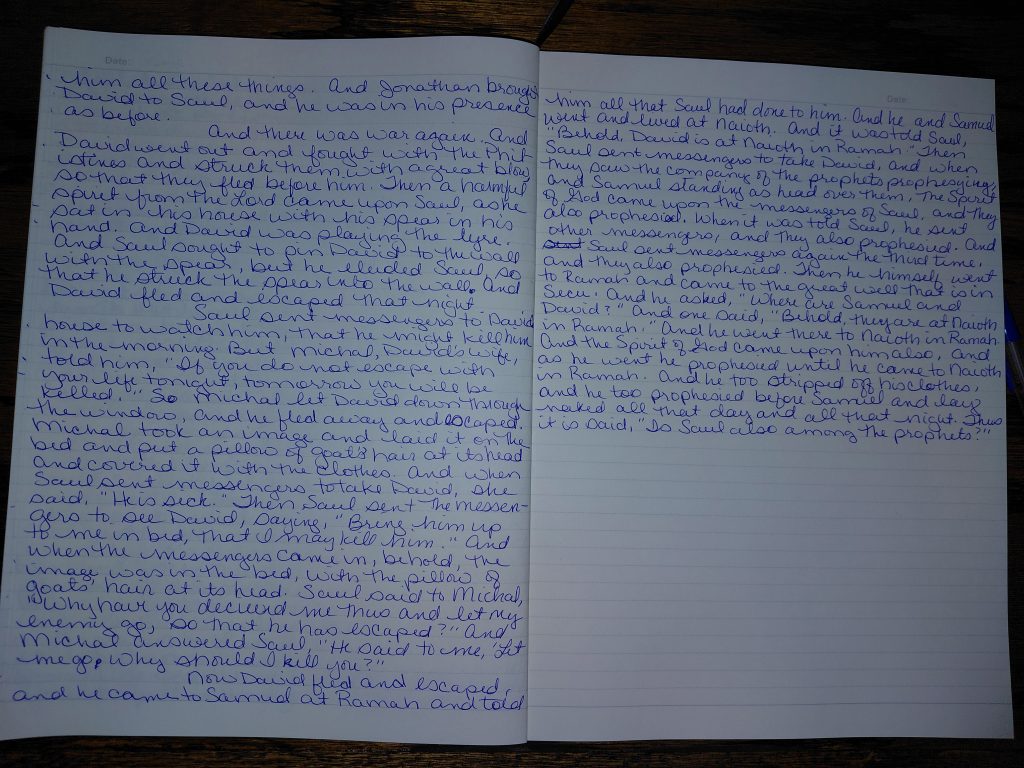 Date:
him all these things. And Jonathan brought
David to Saul, and he was in his presence
as before.
And there was war again. And
David went out and fought with the Phil-
istines and struck them with a great blow
so that they fled before him. Then a harmful
spirit from the Lord came upon Saul, as he
sat in his house with his spear in his
hand. And David was playing the lyre.
And Saul sought to pin David to the wall
with the spear, but he eluded Saul, so
that he struck the spear into the wall. And
David fled and escaped that night.
Saul sent messengers to David
house to watch him, that he might kill him
in the morning. But Michal, David's wife,
told him, "If you do not escape with
your life tonight, tomorrow you will be
killed." So Michal let David down through
the window, and he fled away and escaped.
Michal took an image and laid it on the
bed and put a pillow of goats' hair at its head
and covered it with the clothes. And when
Saul sent messengers to take David, she
said, "He is sick." Then Saul sent the messen-
gers to see David, saying, "Bring him up
to me in bed, that I may kill him." And
when the messengers came in, behold, the
image was in the bed, with the pillow of
goats' hair at its head. Saul said to Michal,
"Why have you deceived me thus and let my
enemy go, so that he has escaped?" And
Michal answered Saul, "He said to me, 'Let
me go, Why should I kill you?"
Now David fled and escaped,
and he came to Samuel at Ramah and told
Date
him all that Saul had done to him. And he and Samuel
went and lived at Naioth. And it was told Saul,
"Behold, David is at Naioth in Ramah." Then
Saul sent messengers to take David, and when
they saw the company of the prophets prophesying,
and Samuel standing as head over them, The Spirit
of God came upon the messengers of Saul, and they
also prophesied. When it was told Saul, he sent
other messengers, and they also prophesied. And
sent Saul sent messengers again the third time,
and they also prophesied. Then he himself went
to Ramah and came to the great well that is in
Secu. And he asked, "Where are Samuel and
David?" And one said, "Behold, they are at Naioth
in Ramah." And he went there to Naioth in Ramah.
And the Spirit of God came upon him also, and
as he went he prophesied until he came to Naioth
in Ramah. And he too stripped off his clothes,
and he too prophesied before Samuel and lay
naked all that day and all that night. Thus
it is said, "Is Saul also among the prophets?"